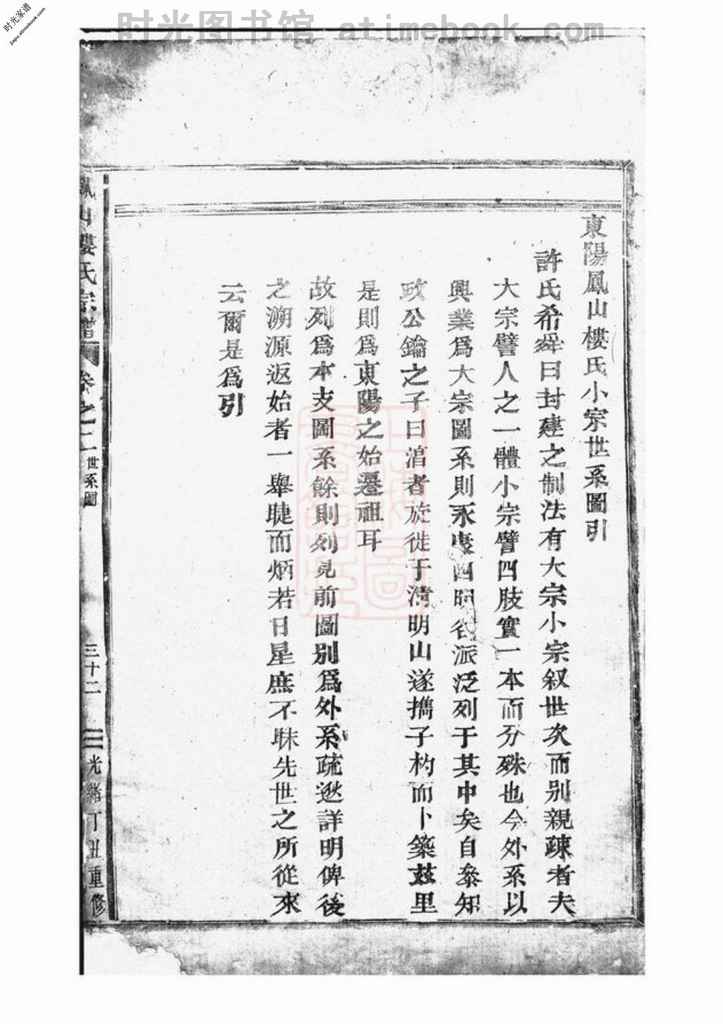 时光图书馆 atimebook.com
时光家谱
東陽鳳山樓氏小宗世系圖引
許氏希舜曰封建之制法有大宗小宗叙世次而別親疎者夫
大宗譬人之一體小宗譬四肢實一本而分殊也今外系以
興業為大宗圖系則永康四明各派泛列于其中矣自叅知
政公鑰之子曰涫者旋徙于清明山遂擕子杓而卜築兹里
是則為東陽之始遷祖耳
故列為本支圖系餘則列見前圖別為外系疏逖詳明俾後
之溯源返始者一舉睫而炳若日星庶不昧先世之所從來
云爾是為引
鳳山樓氏宗譜 卷之二 世系圖 三十二 光緒丁丑重修